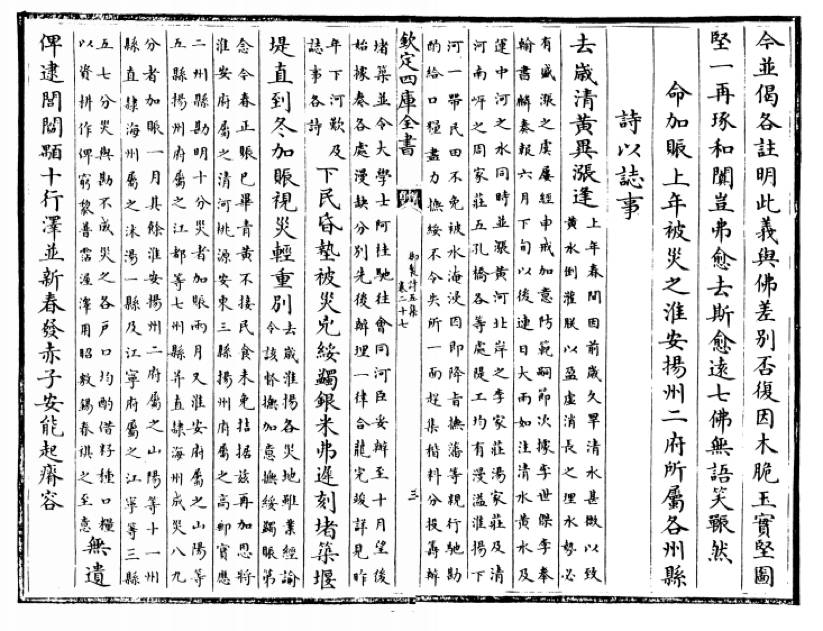 今並偈各註明此義與佛差別否復因木脆玉實堅圖
堅一再琢和闐豈弗愈去斯愈遠七佛無語笑囅然
命加賑上年被災之淮安揚州二府所屬各州縣
詩以誌事
去歲清黃異漲逢
上年春間因前歲久旱清水甚微以致
黃水倒灌朕以盈虛消長之理水勢必
有盛漲之虞屢經申戒加意防範嗣節次據李世傑李奉
翰書麟奏報六月下旬以後連日大雨如注清水黃水及
運中河之水同時並漲黃河北岸之李家莊湯家莊及清
河南岸之周家莊五孔橋各等處隄工均有漫溢淮揚下
河一帶民田不免被水淹浸因即降旨撫藩等親行馳勘
酌給口糧盡力撫綏不令失所一面趕集楷料分投籌辦
欽定四庫全書
御製詩五集
卷二十七
三
堵築並令大學士阿桂馳往會同河臣妥辦至十月望後
始據奏各處漫缺分別先後辦理一律合龍完竣詳見昨
年下河歎及
誌事各詩
下民昏墊被災兇綏蠲銀米弗遲刻堵築堰
堤直到冬加賑視災輕重別
去歲淮揚各災地雖業經諭
令該督撫加意撫綏蠲賑第
念今春正賑已畢青黃不接民食未免拮据茲再加恩將
淮安府屬之清河桃源安東三縣揚州府屬之高郵寶應
二州縣勘明十分災者加賑兩月又淮安府屬之山陽等
五縣揚州府屬之江都等七州縣并直隸海州成災八九
分者加賑一月其餘淮安揚州二府屬之山陽等十一州
縣直隸海州屬之沭陽一縣及江寧府屬之江寧等三縣
五七分災與勘不成災之各戶口均酌借籽種口糧
以資耕作俾窮黎普霑渥澤用昭敕錫春祺之至意
無遺
俾逮閭閻顒十行澤並新春發赤子安能起瘠容